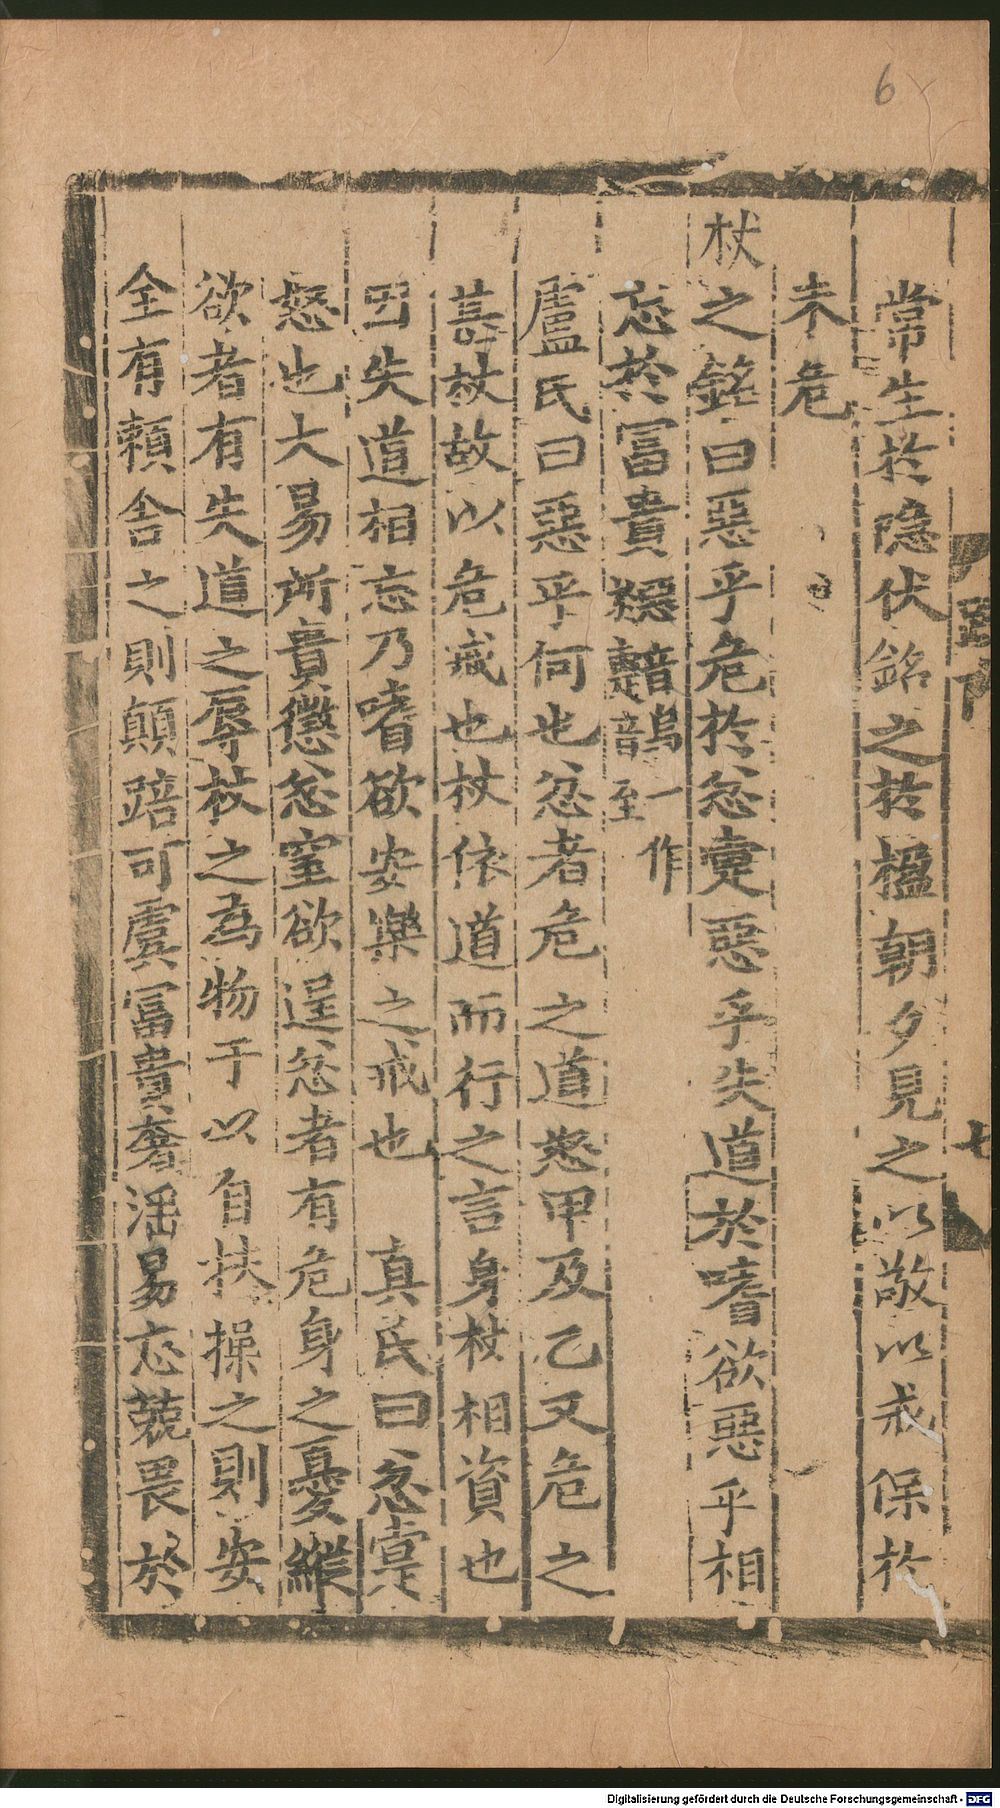 6
常生於隱伏銘之於楹朝夕見之以敬以戒保於
未危
杖之銘曰惡乎危於忿疐惡乎失道於嗜欲惡乎相
忘於富貴
惡音烏一作
疐音至
盧氏曰惡乎何也忿者危之道怒甲及乙又危之
甚杖故以危戒也杖依道而行之言身杖相資也
因失道相忘乃嗜欲安樂之戒也 真氏曰忿疐
怒也大易所貴懲忿窒欲逞忿者有危身之憂縱
欲者有失道之辱杖之為物于以自扶操之則安
全有賴舍之則顛踣可虞冨貴奢淫易忘兢畏於
Digitalisierung gefördert durch die Deutsche Forschungsgemeinschaft - DFG